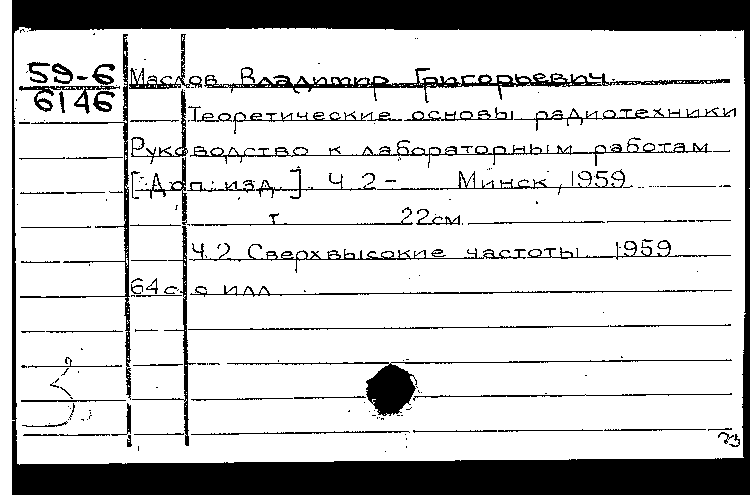 59-6 Маслов, Владимир Григорьевич
6146
Теоретические основы радиотехники
Руководство к лабораторным работам
[Доп. изд.] Ч. 2- Минск, 1959
т. 22см
Ч. 2 Сверхвысокие частоты 1959
64 с. с илл.